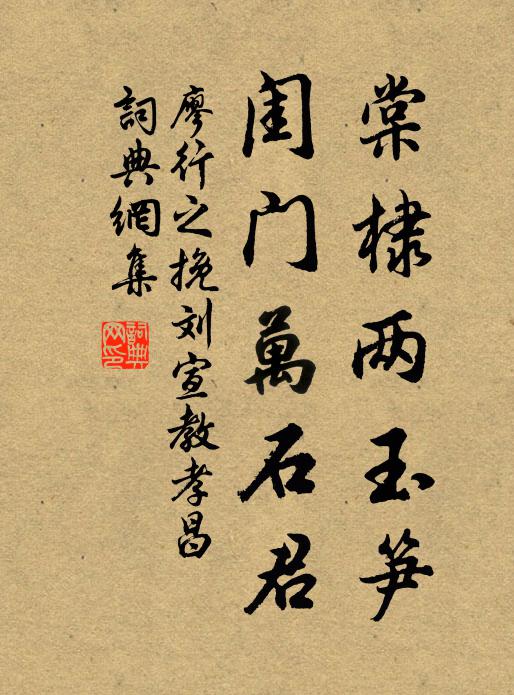 棠棣两玉笋
闺门萬石君
廖行之挽刘宣教孝昌
詞典網集
詞典网印